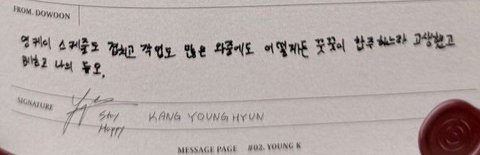 FROM. DOWOON
영케이 스케줄도 겹치고 작업도 많은 와중에도 어떻게든 꿋꿋이 합주하느라 고생했고
나의 듀오.
SIGNATURE
Stay
Happy
KANG YOUNGHYUN
MESSAGE PAGE #02. YOUNG K